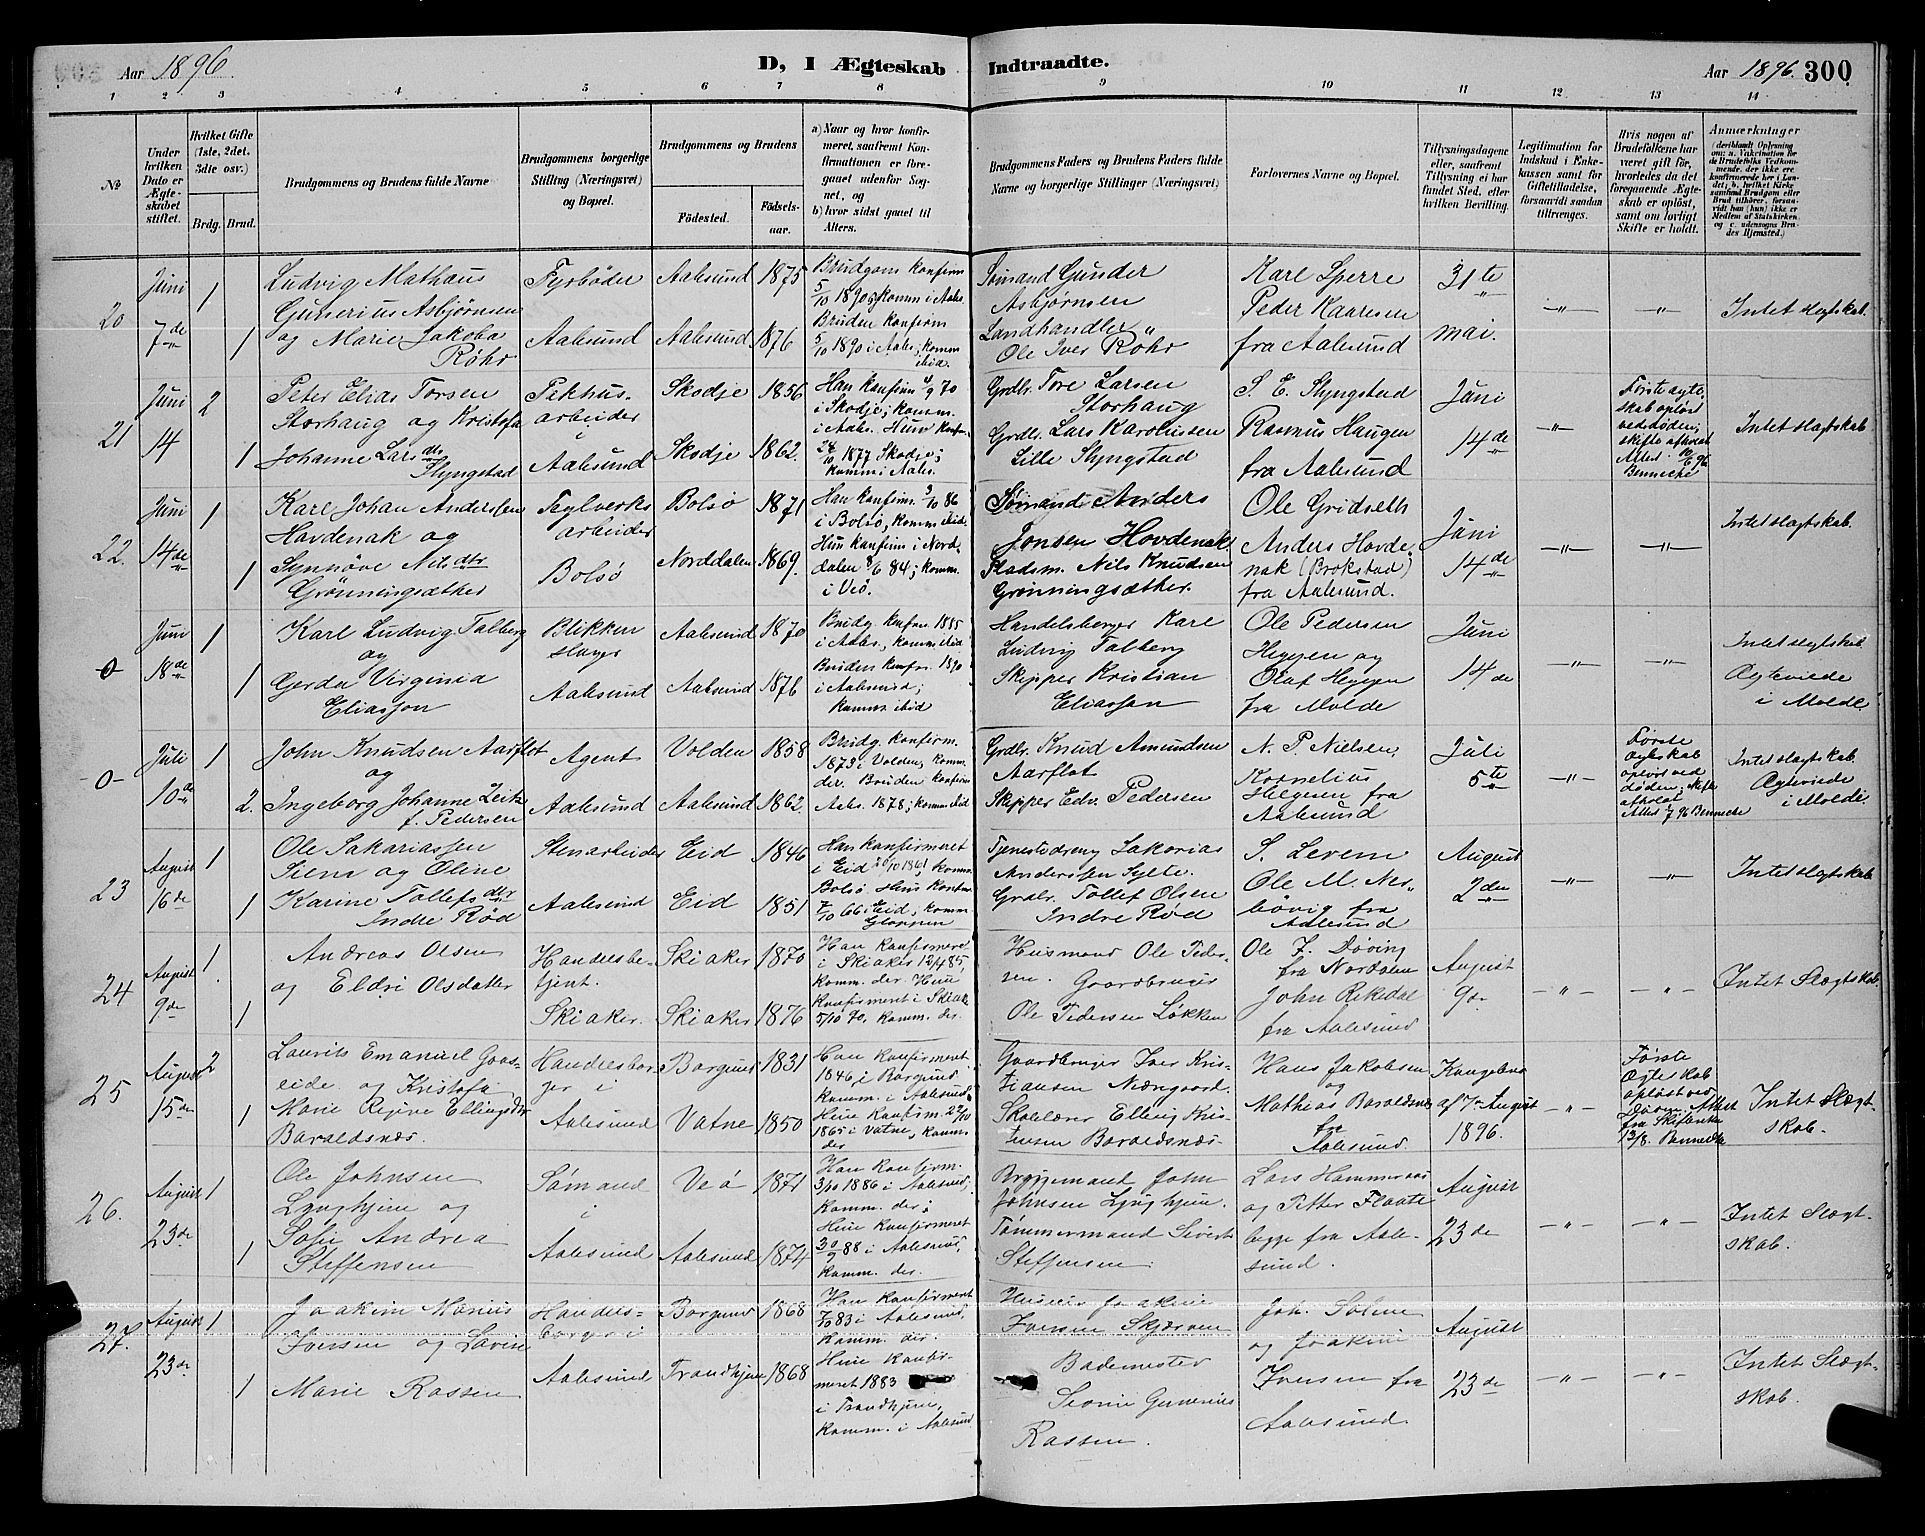 Aar 1896.
D, I Ægteskab
Indtraadte.
Aar 1896. 300
1 2 3 4 5 6 7 8 9 10 11 12 13 14
No
Under hvilken Dato er Ægteskabet stiftet.
Hvilket Gifte (1ste, 2det, 3die osv.)
Brdg. Brud.
Brudgommens og Brudens fulde Navne
Brudgommens borgerlige Stilling (Næringsvei) og Bopæl.
Brudgommens og Brudens
Födested. Födselsaar.
a) Naar og hvor konfirmeret, saafremt Konfirmationen er foregaaet udenfor Sognet, og
b) hvor sidst gaaet til Alters.
Brudgommens Faders og Brudens Faders fulde Navne og borgerlige Stillinger (Næringsvei)
Forlovernes Navne og Bopæl.
Tillysningsdagene eller, saafremt Tillysning ei har fundet Sted, efter hvilken Bevilling.
Legitimation for Indskud i Enkekassen samt for Giftetilladelse, forsaavidt saadan tiltrænges.
Hvis nogen af Brudefolkene har været gift för, hvorledes da det foregaaende Ægteskab er oplöst, samt om lovligt Skifte er holdt.
Anmærkninger
20
Juni 7de
1
1
Ludvig Mathæus
Gunerius Asbjørnsen
og Marie Jakoba
Røhr
Fyrbøder
Aalesund
Aalesund 1875
Aalesund 1876
Brudgom konfirm
5/10 1890 komm i Aals.
Bruden konfirm
5/10 1890 i Aals; komm
ibid.
Sømand Gunder
Asbjørnsen
Landhandler
Ole Iver Røhr
Karl Sperre
Peder Kaaresen
fra Aalesund
31te
mai.
Intet slegtskab.
21
Juni 14
2
1
Peter Elias Torsen
Storhaug og Kristofa
Johanne Larsdtr
Slyngstad
Pakhus-
arbeider
i
Aalesund
Skodje 1856
Skodje 1862.
Han konfirm 4/9 70
i Skodje; komm.
i Aals. Hun konf.
28/10 1877 Skodje;
komm i Aals.
Grdbr. Tore Larsen
Storhaug
Grdbr. Lars Karolussen
Lille Slyngstad
S. E. Slyngstad
Rasmus Haugen
fra Aalesund
Juni
14de
Første ægte-
skab opløst
ved døden;
skifte afholdt
Attest 10/6 96
Bennecke
Intet slagtskab
22.
Juni 14de
1
1
Karl Johan Anderssen
Hovdenak og
Synnöve Nilsdtr
Grönningsæther
Teglverks
arbeider
Bolsö
Bolsö 1871
Norddalen 1869.
Han konfirm. 3/10 86
i Bolsö, komm ibid.
Hun konfirm i Nord-
dalen 8/6 84; komm.
i Veö.
Sømand Anders
Jonsen Hovdenak
Pladsm. Nils Knudsen
Grønningsæther.
Ole Gridseth
Anders Hovde-
nak (Brokstad)
fra Aalesund.
Juni
14de
Intet slagtskab.
0
Juni 18de
1
1
Karl Ludvig Talberg
og
Gerda Virginia
Eliassen
Blikken
slager
Aalesund
Aalesund 1870
Aalesund 1876
Brudg. konfirm. 1885
i Aals., komm ibid
Bruden konfr. 1890
i Aalesund;
komm ibid
Handelsborger Karl
Ludvig Talberg
Skipper Kristian
Eliassen
Ole Pedersen
Heggen og
Olaf Heggen
fra Molde
Juni
14de
Intet slegtskab
Ægteviede
i Molde.
0
Juli 10de
1
2.
John Knudsen Aarflot
og
Ingeborg Johanne Leitz
f. Pedersen
Agent
Aalesund
Volden 1858
Aalesund 1862.
Brudg. konfirm.
1873 i Volden, komm
der. Bruden konfirm
Aals. 1878; komm ibid
Grdbr. Knud Amundsen
Aarflot
Skipper Edv. Pedersen
N. P. Nielsen
Kornelius
Helgesen fra
Aalesund
Juli
5te
Første
ægteskab
opløst ved
døden; skifte
afholdt
Attest 1/7 96 Bennecke
Intet slagtskab.
Ægteviede
i Molde.
23
August 16de
1
1
Ole Sakariassen
Siem og Oline
Karine Tollefsdtr
Indre Rød
Stenarbeider
Aalesund
Eid 1846
Eid 1851
Han konfirmeret
i Eid 20/10 1861, komm.
Bolsö Hun konf.
7/10 66 i Eid; komm
Gloppen
Tjenestedreng Sakarias
Anderssen Sylte.
Grdbr. Tollef Olsen
Indre Rød
S. Levem
Ole M. Nes-
bövig fra
Aalesund
August
2den
Intet slagtskab.
24
August 9de
1
1
Andreas Olsen
og Eldri Olsdatter
Handelsbe-
tjent.
Skiaker.
Skiaker 1870
Skiaker 1876
Han konfirmeret
i Skiaker 12/4 85,
komm. der. Hun
konfirmeret i Skiak
5/10 90, komm. der.
Husmand Ole Peder-
sen. Gaardbruger
Ole Pedersen Løkken
Ole J. Døving
fra Nordalen
John Rekedal
fra Aalesund
August
9de
Intet Slægtskab.
25
August 15de
2
1
Laurits Emanuel Gaas-
eide og Kristofa
Marie Regine Ellingsdtr
Baraldsnæs.
Handelsbor-
ger i
Aalesund
Borgund 1831
Vatne 1850
Han konfirmeret
1846 i Borgund
komm. i Aalesund
Hun konfirm. 22/10
1865 i Vatne, komm.
der
Gaardbruger Iver Kris-
tiansen Nærgaard.
Skolelærer Elling Kris-
tensen Baraldsnæs.
Hans Jakobsen
og
Mathias Baraldsnæs
fra
Aalesund.
Kongebrev
af 7de August
1896.
Første
Ægteskab
opløst ved
Døden. Attest
fra Skifteretten
13/8. Bennecke
Intet Slægt-
skab.
26.
August 23de
1
1
Ole Johnsen
Lynghjem og
Sofie Andrea
Steffensen
Sømand
i
Aalesund
Veö 1871
Aalesund 1874
Han konfirm.
3/10 1886 i Aalesund,
komm. der;
Hun konfirmeret
30/9 88 i Aalesund,
komm. der.
Bryggemand John
Johnsen Lynghjem.
Tømmermand Sivert
Steffensen.
Lars Hammeraas
og Petter Flaate
begge fra Aale-
sund.
August
23de
Intet Slægt-
skab.
27.
August 23de
1
1
Joakim Marius
Iversen og Lavine
Marie Rossen
Handels-
borger i
Aalesund
Borgund 1868
Trondhjem 1868
Han konfirmeret
7/10 83 i Aalesund,
komm. der.
Hun konfir-
meret 1883
i Trondhjem,
komm. i Aalesund
Huseier Joakim
Iversen Skjærven
Bademester
Gunerius
Rossen.
Joh. Solem
og Joakim
Iversen fra
Aalesund.
August
23de
Intet Slægt-
skab.